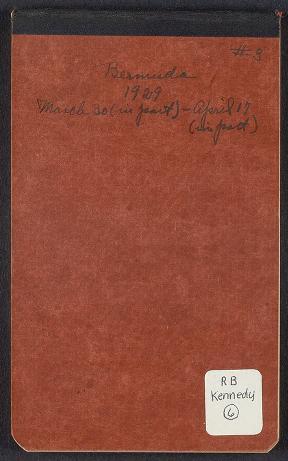 # 3
Bermuda
1929
March 30 (in part) - April 17
(in part)
R B
Kennedy
6